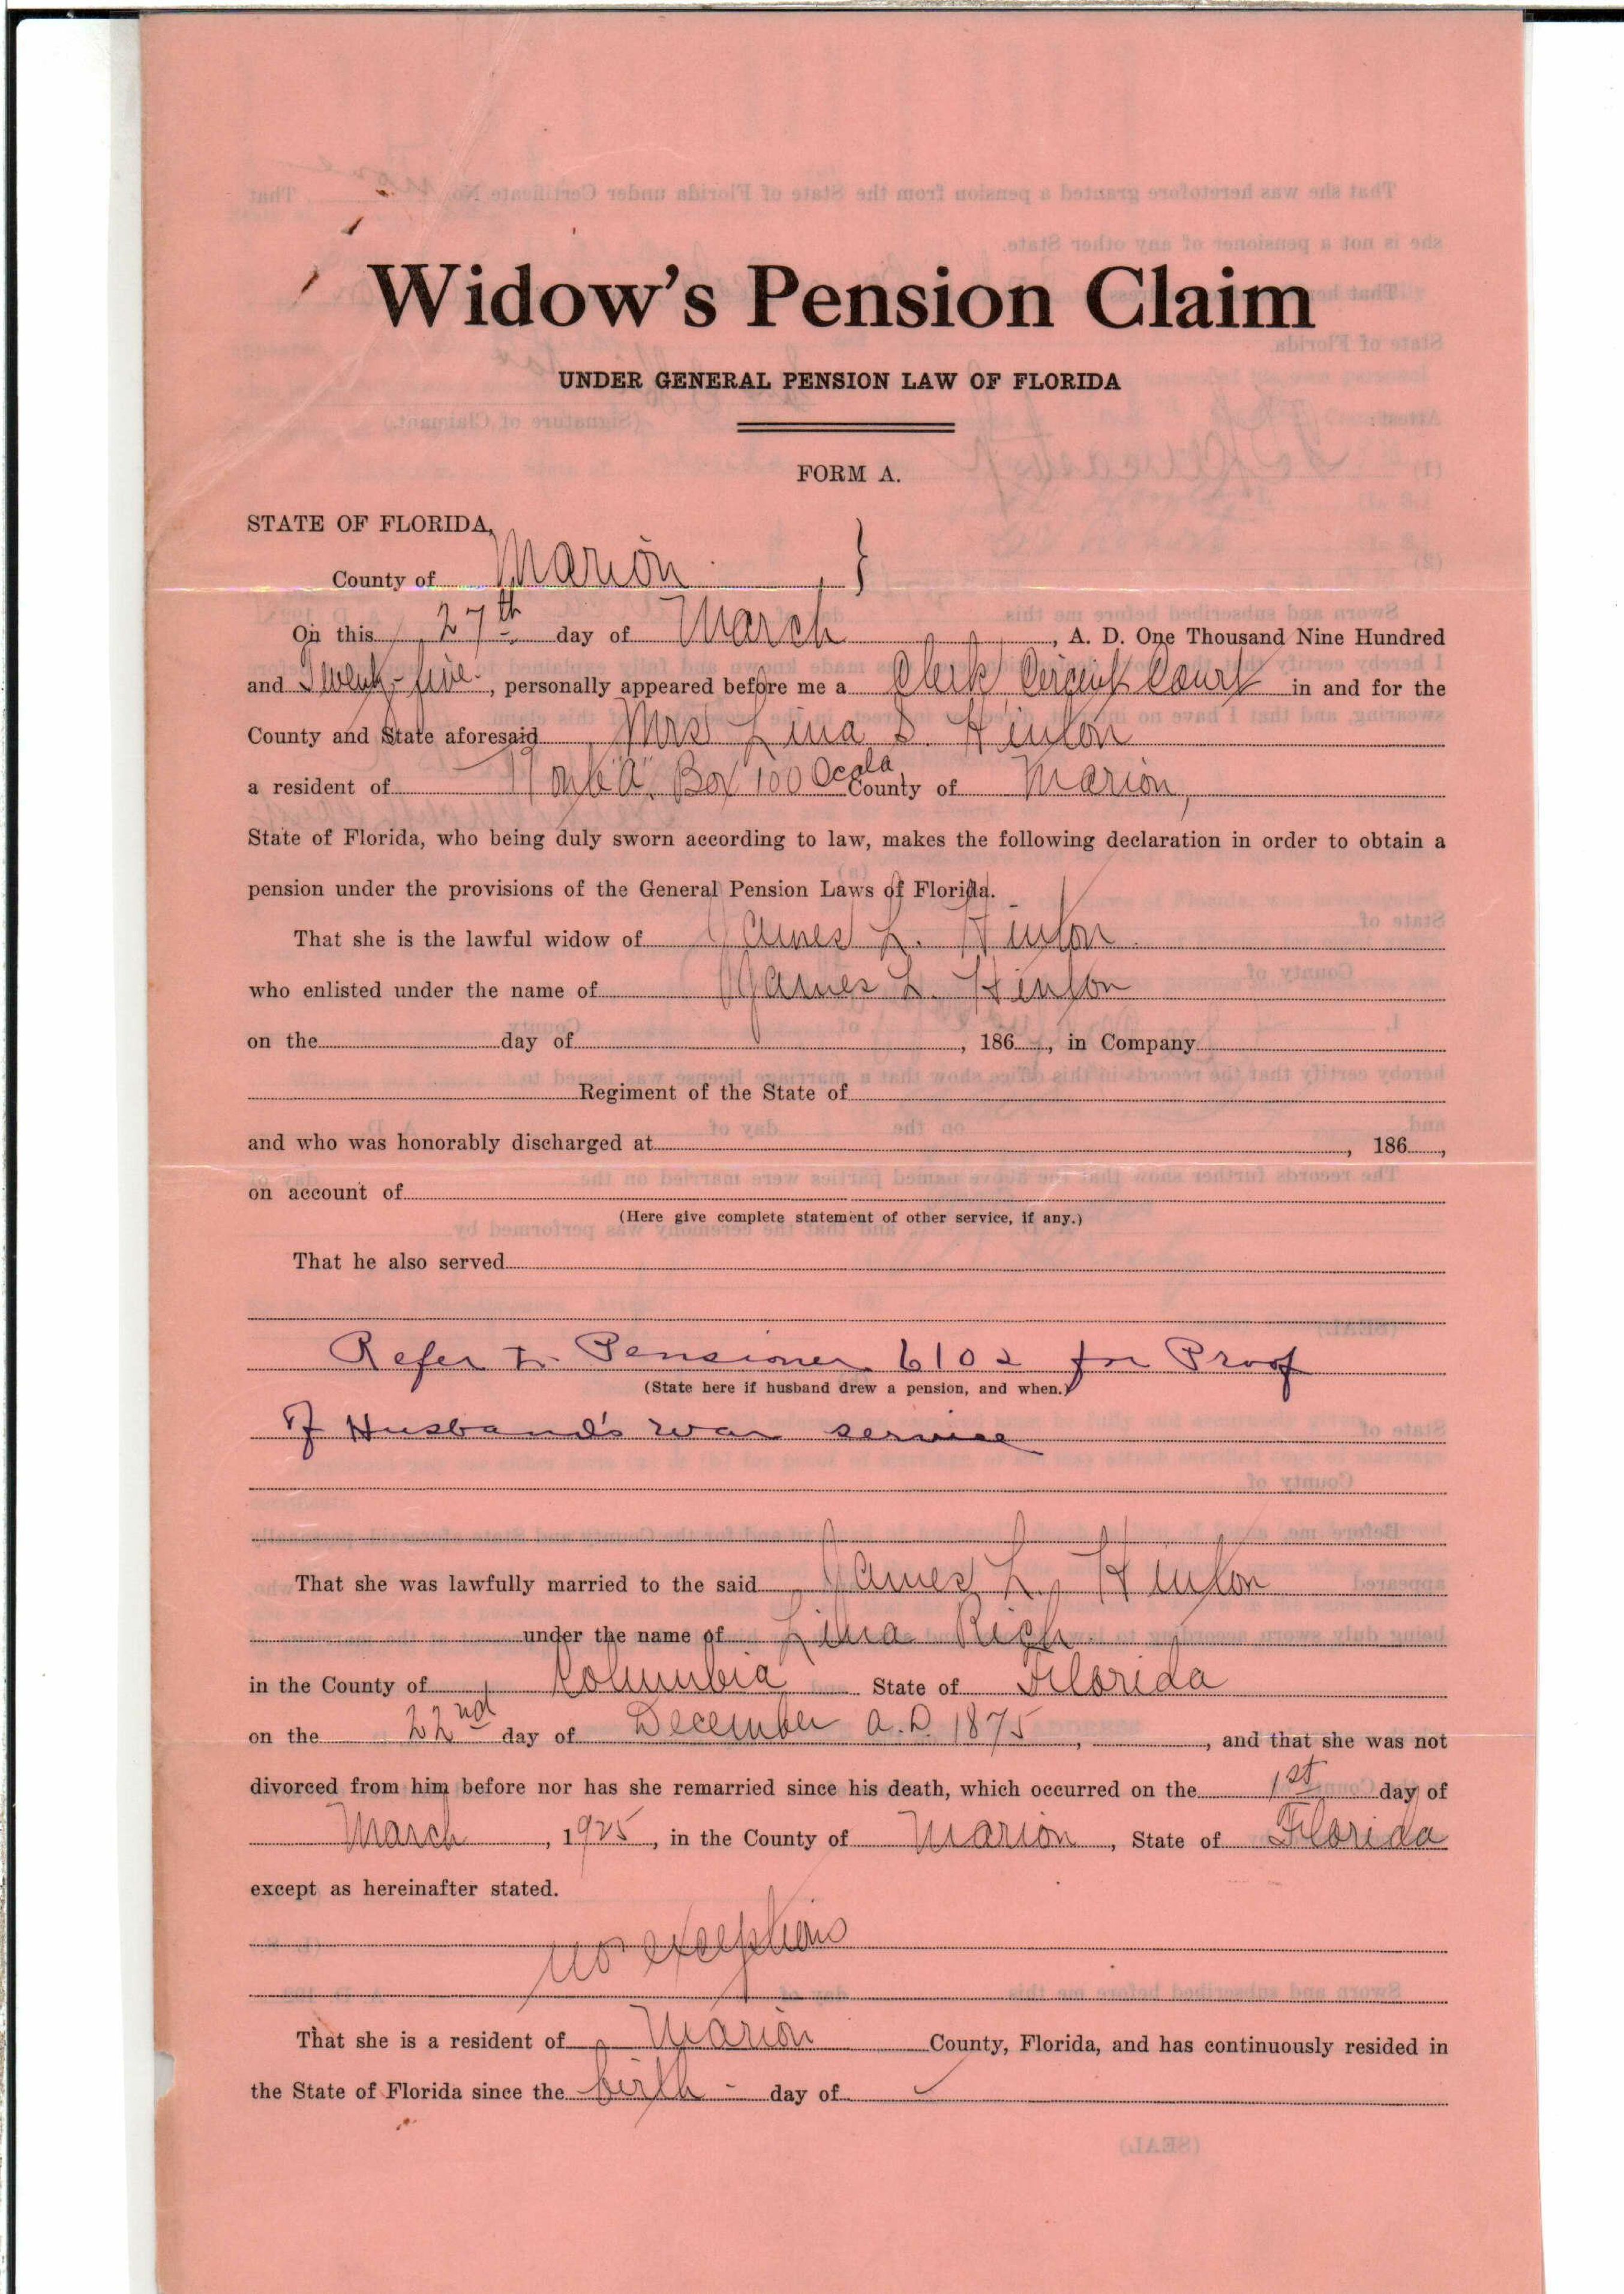 Widow's Pension Claim
UNDER GENERAL PENSION LAW OF FLORIDA
FORM A.
STATE OF FLORIDA,
County of Marion, }
On this 27th day of March, A. D. One Thousand Nine Hundred
and Twenty-five, personally appeared before me a Clerk Circuit Court in and for the
County and State aforesaid Mrs Lina S. Hinton
a resident of Route "A", Box 100 Ocala County of Marion,
State of Florida, who being duly sworn according to law, makes the following declaration in order to obtain a
pension under the provisions of the General Pension Laws of Florida.
That she is the lawful widow of James L. Hinton
who enlisted under the name of James L. Hinton
on the day of , 186 , in Company
Regiment of the State of
and who was honorably discharged at , 186 ,
on account of
(Here give complete statement of other service, if any.)
That he also served
Refer to Pensioner 6102 for Proof
(State here if husband drew a pension, and when.)
of Husband's war service
That she was lawfully married to the said James L. Hinton
under the name of Lina Rich
in the County of Columbia State of Florida
on the 22nd day of December A.D. 1875, , and that she was not
divorced from him before nor has she remarried since his death, which occurred on the 1st day of
March, 1925, in the County of Marion, State of Florida
except as hereinafter stated.
no exceptions
That she is a resident of Marion County, Florida, and has continuously resided in
the State of Florida since the birth - day of